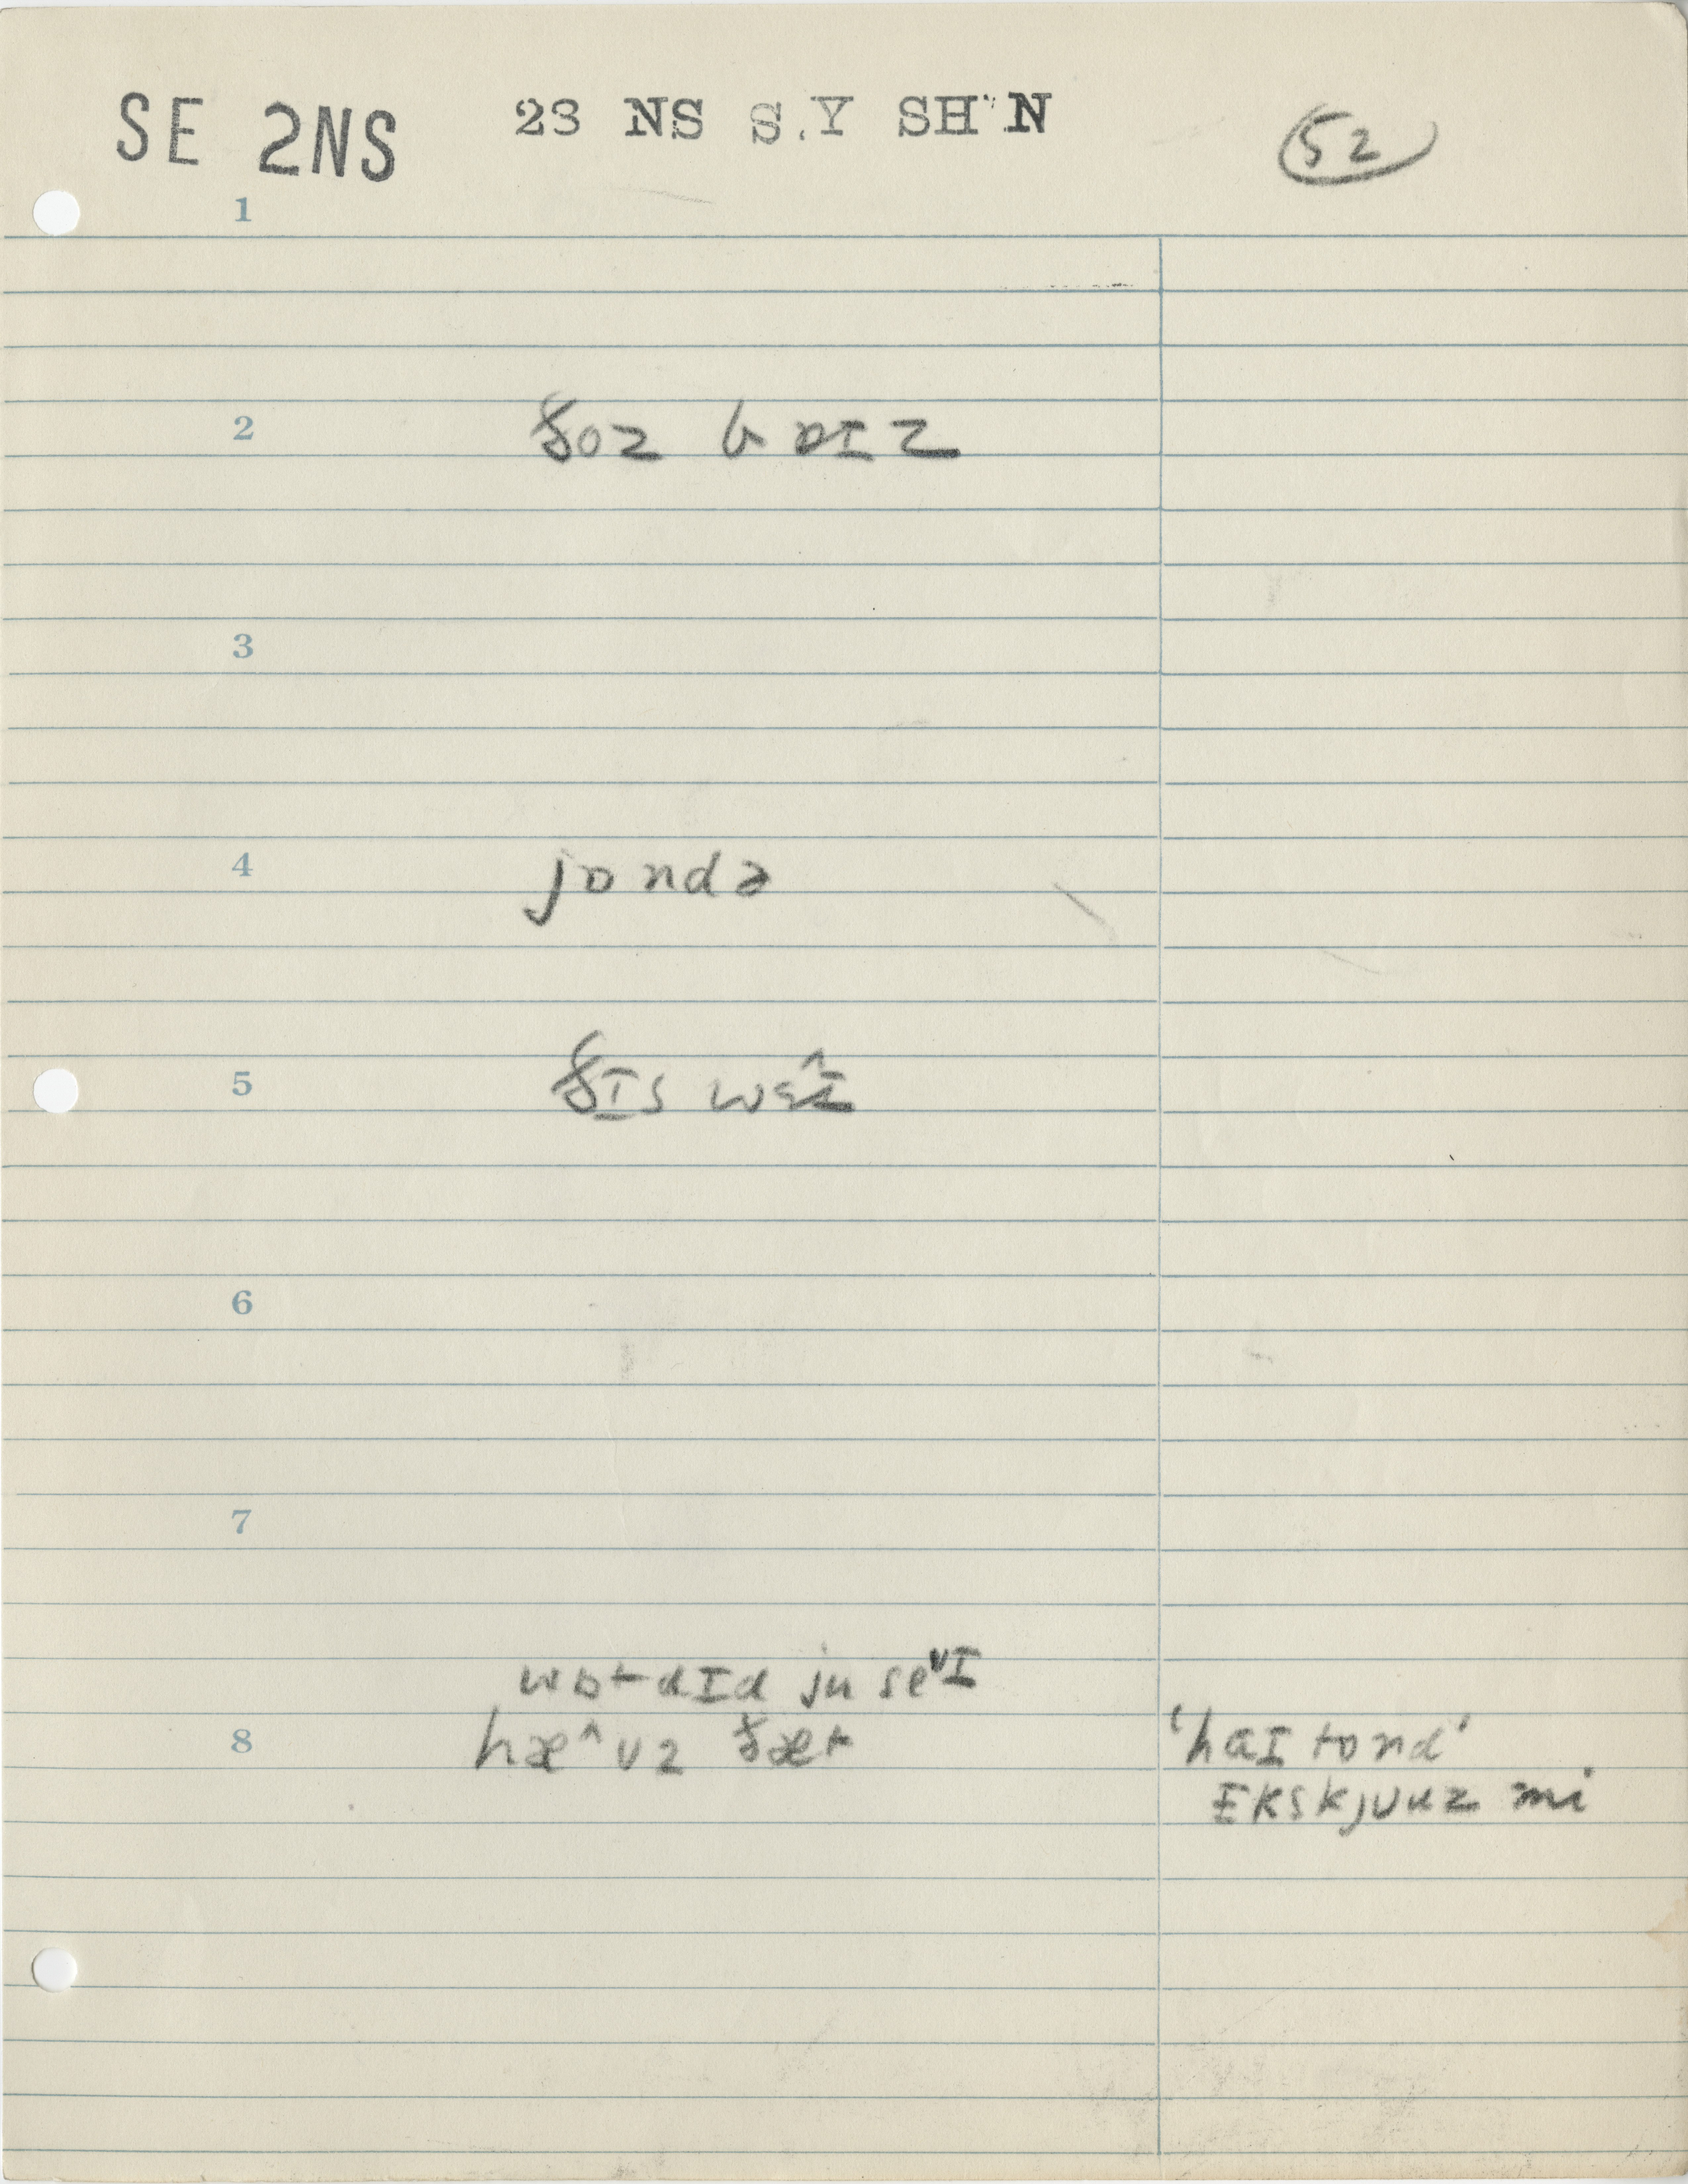 SE 2NS 23 NS S.Y SH N 52
1
2 ðoz bɒɪz
3
4 jɒndə
5 ðɪs wɛ^ɪ
6
7
wɒt dɪd ju seᵛɪ
8 hæ^vz ðæt 'haɪ tond'
ɛkskjuuz mi